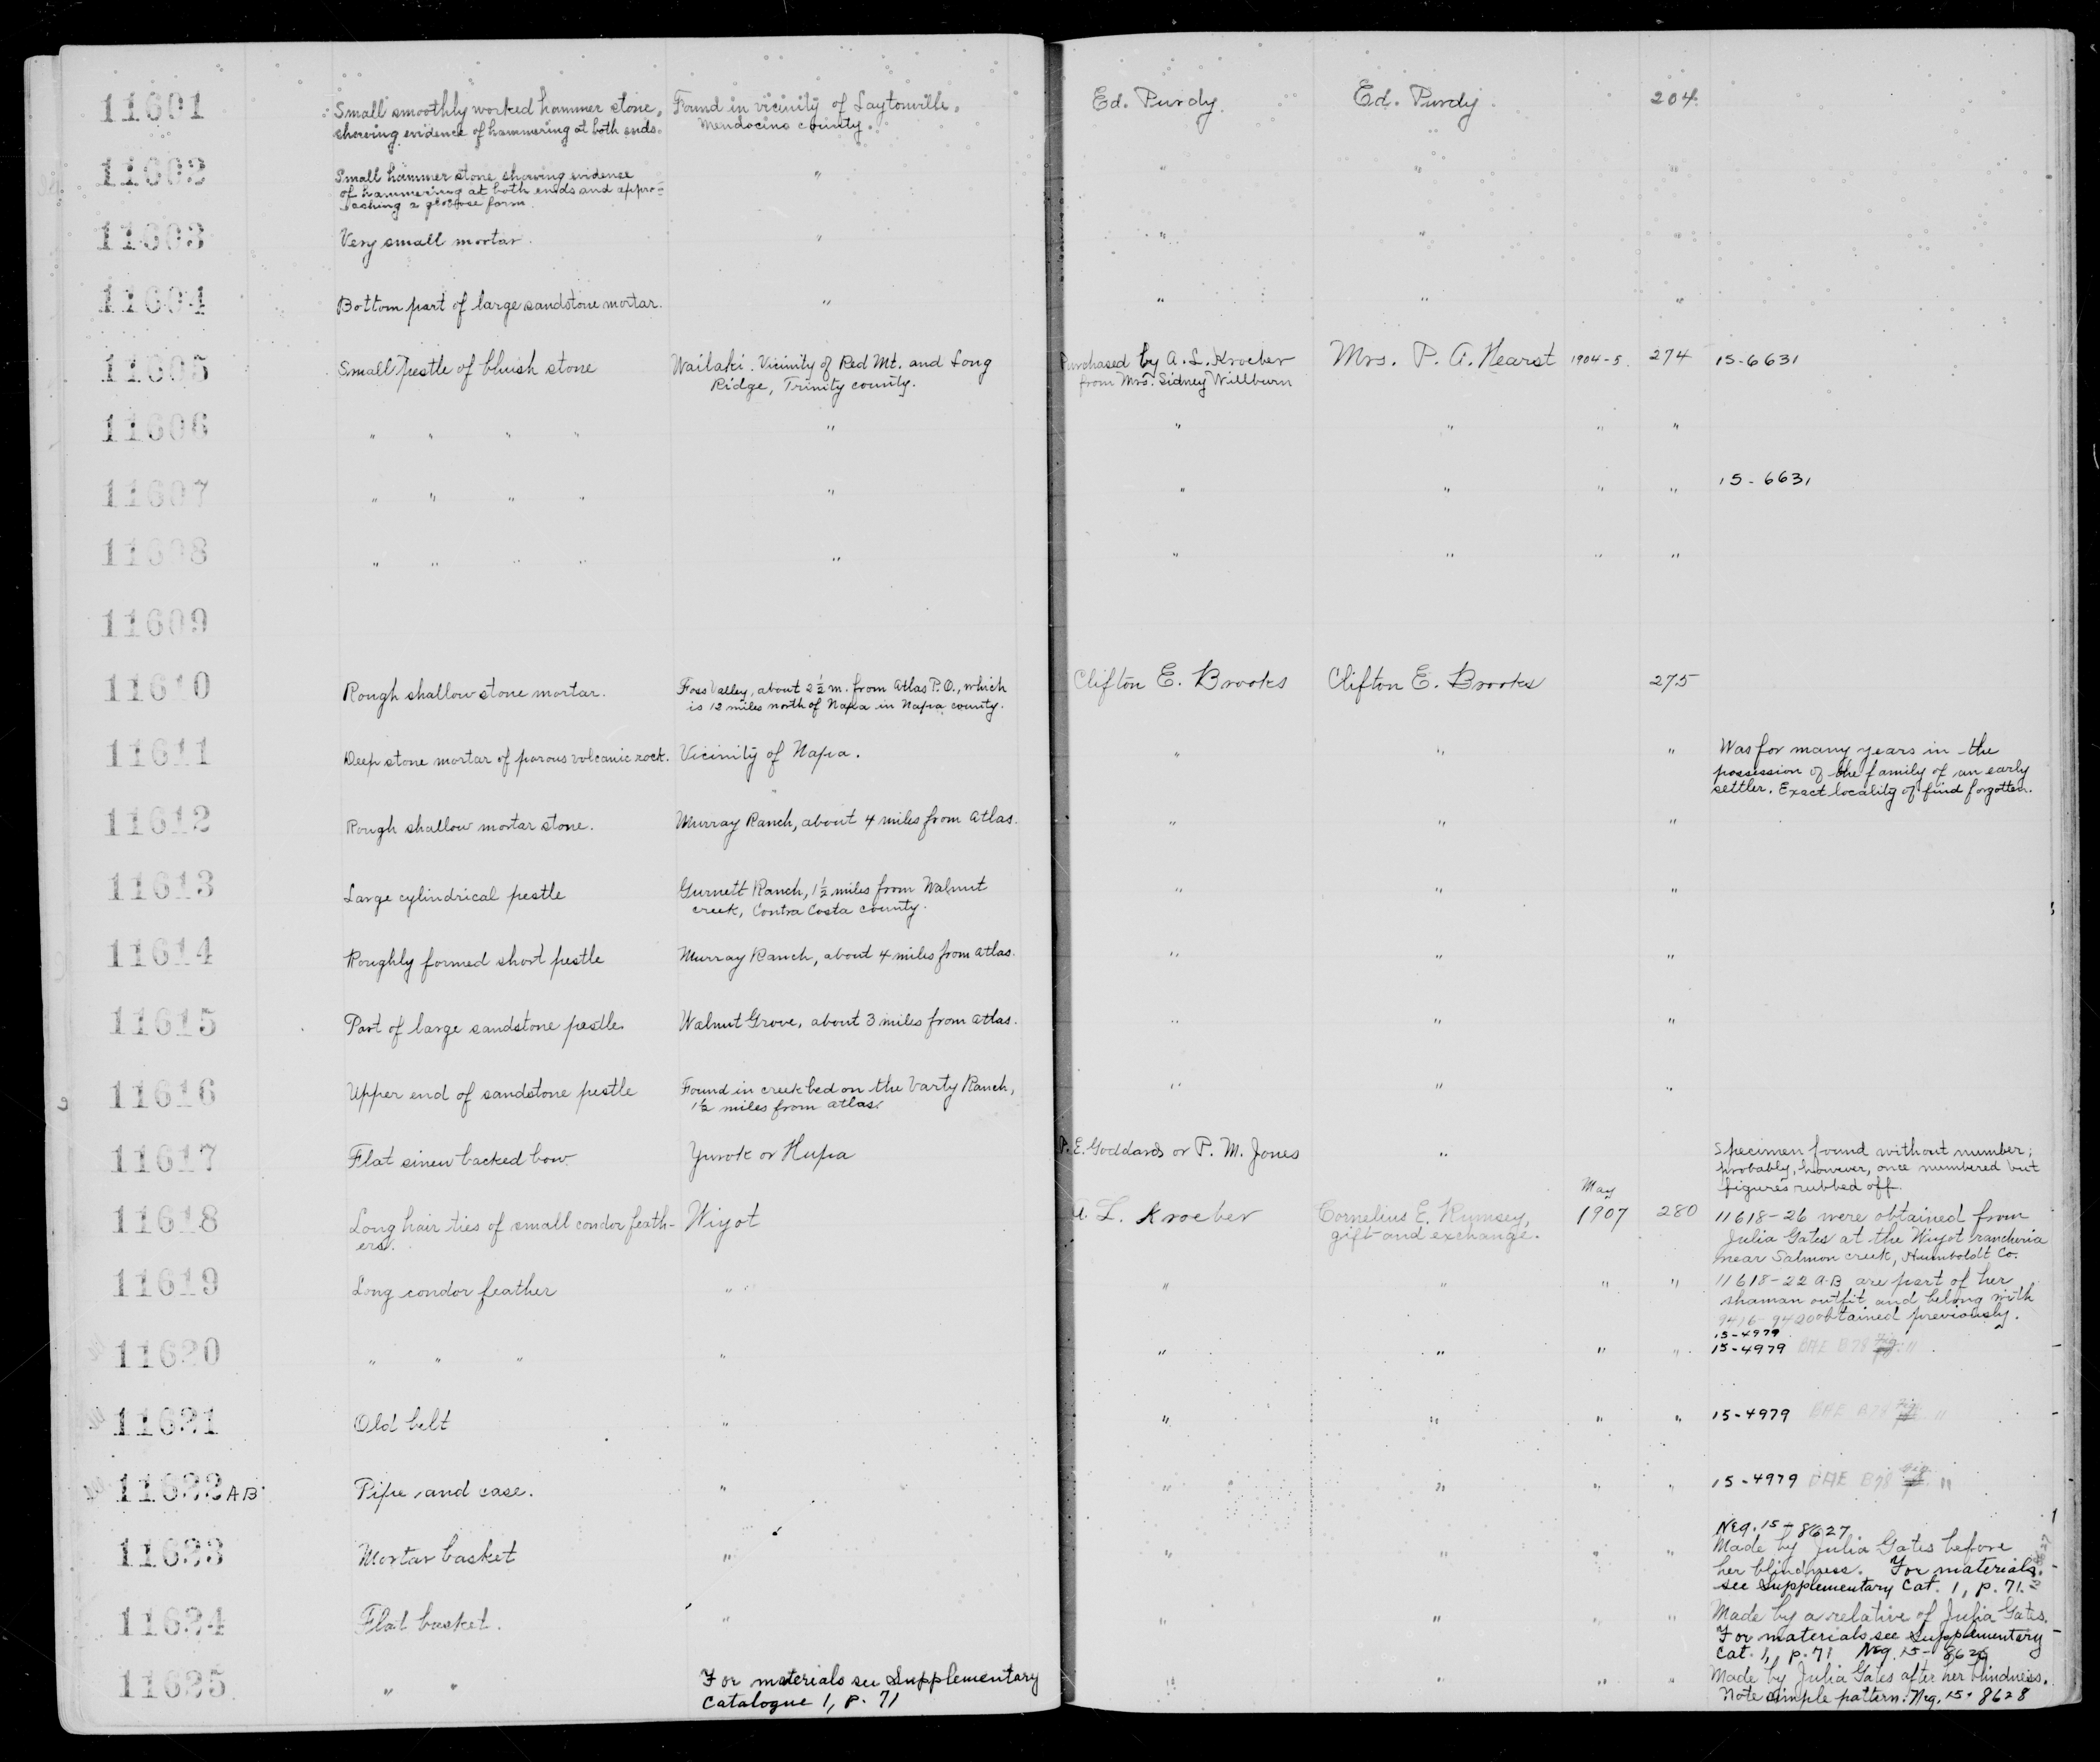 11601 Small smoothly worked hammer stone, Found in vicinity of Laytonville, Ed. Purdy. Ed. Purdy. 204.
showing evidence of hammering at both ends. Mendocino county.
11602 Small hammer stone showing evidence " " " "
of hammering at both ends and appro-
aching a globose form.
11603 Very small mortar. " " " "
11604 Bottom part of large sandstone mortar. " " " "
11605 Small pestle of bluish stone Wailaki. Vicinity of Red Mt. and Long Purchased by A. L. Kroeber Mrs. P. A. Hearst 1904-5. 274 15-6631
Ridge, Trinity county. from Mrs. Sidney Willburn
11606 " " " " " " " " "
11607 " " " " " " " " " 15-6631
11608 " " " " " " " " "
11609
11610 Rough shallow stone mortar. Foss Valley, about 2½ m. from Atlas P.O., which Clifton E. Brooks Clifton E. Brooks 275
is 12 miles north of Napa in Napa county.
11611 Deep stone mortar of porous volcanic rock. Vicinity of Napa. " " " Was for many years in the
possession of the family of an early
settler. Exact locality of find forgotten.
11612 Rough shallow mortar stone. Murray Ranch, about 4 miles from Atlas. " " "
11613 Large cylindrical pestle Gurnett Ranch, 1½ miles from Walnut " " "
creek, Contra Costa county.
11614 Roughly formed short pestle Murray Ranch, about 4 miles from Atlas. " " "
11615 Part of large sandstone pestle. Walnut Grove, about 3 miles from Atlas. " " "
11616 Upper end of sandstone pestle Found in creek bed on the Varty Ranch, " " "
1½ miles from Atlas.
11617 Flat sinew backed bow. Yurok or Hupa P. E. Goddard or P. M. Jones " Specimen found without number;
probably, however, once numbered but
figures rubbed off.
May
11618 Long hair ties of small condor feath- Wiyot A. L. Kroeber Cornelius E. Rumsey, 1907 280 11618-26 were obtained from
ers. gift and exchange. Julia Gates at the Wiyot rancheria
near Salmon creek, Humboldt Co.
11619 Long condor feather " " " " " 11618-22 A-B are part of her
shaman outfit and belong with
9416-9420 obtained previously.
15-4979
11620 " " " " " " " " 15-4979 BAE B78
11621 Old belt " " " " " 15-4979 BAE B78
11622 AB Pipe and case. " " " " " 15-4979 BAE B78
Neg. 15-8627
11623 Mortar basket " " " " " Made by Julia Gates before
her blindness. For materials
see Supplementary Cat. 1, p. 71.
11624 Flat basket. " " " " " Made by a relative of Julia Gates.
For materials see Supplementary
Cat. 1, p. 71 Neg. 15-8626
11625 " " For materials see Supplementary " " " " Made by Julia Gates after her blindness.
Catalogue 1, p. 71 Note simple pattern. Neg. 15-8628